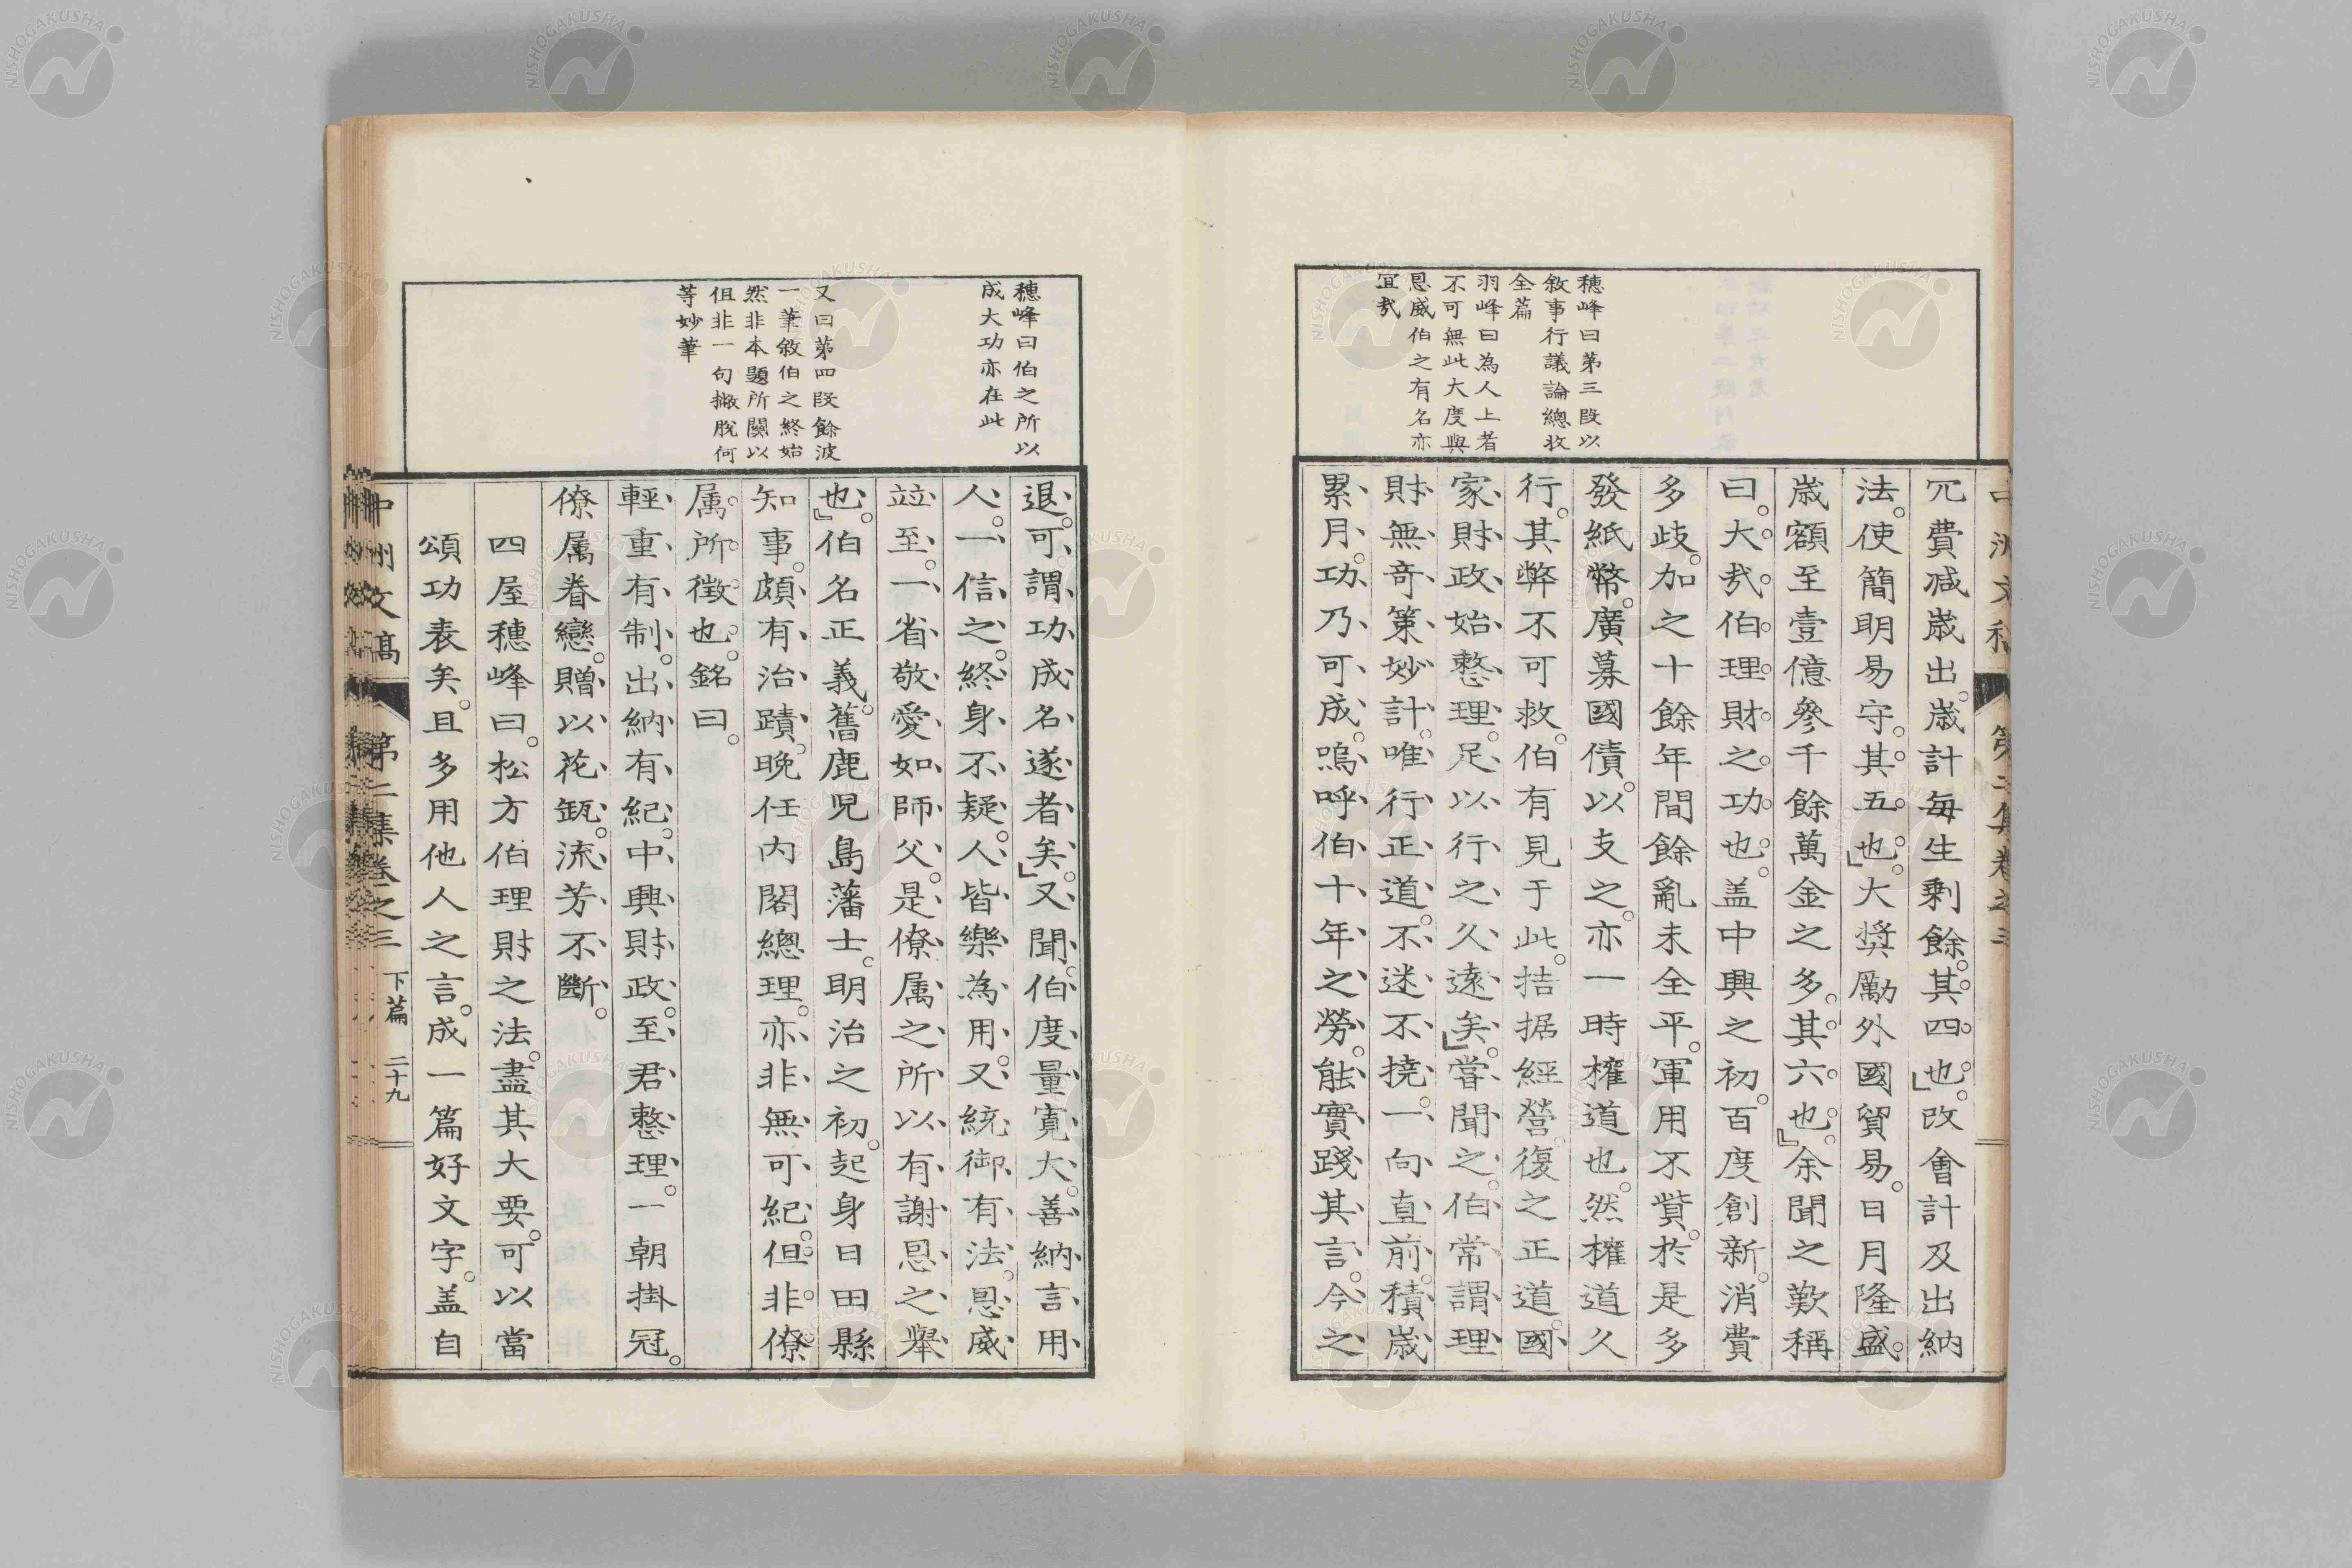 穗峰曰第三段以
敘事行議論總收
全篇
羽峰曰為人上者
不可無此大度與
恩威伯之有名亦
宜哉
冗費減歲出。歲計每生剩餘。其四也。改會計及出納
法。使簡明易守。其五也。大奬勵外國貿易。日月隆盛。
歲額至壹億參千餘萬金之多。其六也。余聞之歎稱
曰。大哉。伯理財之功也。盖中興之初。百度創新。消費
多歧。加之十餘年間餘亂未全平。軍用不貲。於是多
發紙幣。廣募國債。以支之。亦一時權道也。然權道久
行。其弊不可救。伯有見于此。拮据經營。復之正道。國
家財政始整理。足以行之久遠矣。嘗聞之。伯常謂理
財無奇策妙計。唯行正道。不迷不撓。一向直前。積歲
累月。功乃可成。嗚呼伯十年之勞。能實踐其言。今之
穗峰曰伯之所以
成大功亦在此
又曰第四段餘波
一筆敘伯之終始
然非本題所關以
但非一句撇脫何
等妙筆
退。可謂功成名遂者矣。又聞。伯度量寬大。善納言用
人。一信之。終身不疑。人皆樂為用。又統御有法。恩威
竝至。一省敬愛如師父。是僚属之所以有謝恩之擧
也。伯名正義。舊鹿児島藩士。明治之初。起身日田縣
知事。頗有治蹟。晚任内閣總理。亦非無可紀。但非僚
属所徵也。銘曰。
輕重有制。出納有紀。中興財政。至君整理。一朝掛冠。
僚属眷戀。贈以花瓶。流芳不斷。
四屋穗峰曰。松方伯理財之法。盡其大要。可以當
頌功表矣。且多用他人之言。成一篇好文字。盖自
中洲文稿 第二集卷之三 下篇 二十九